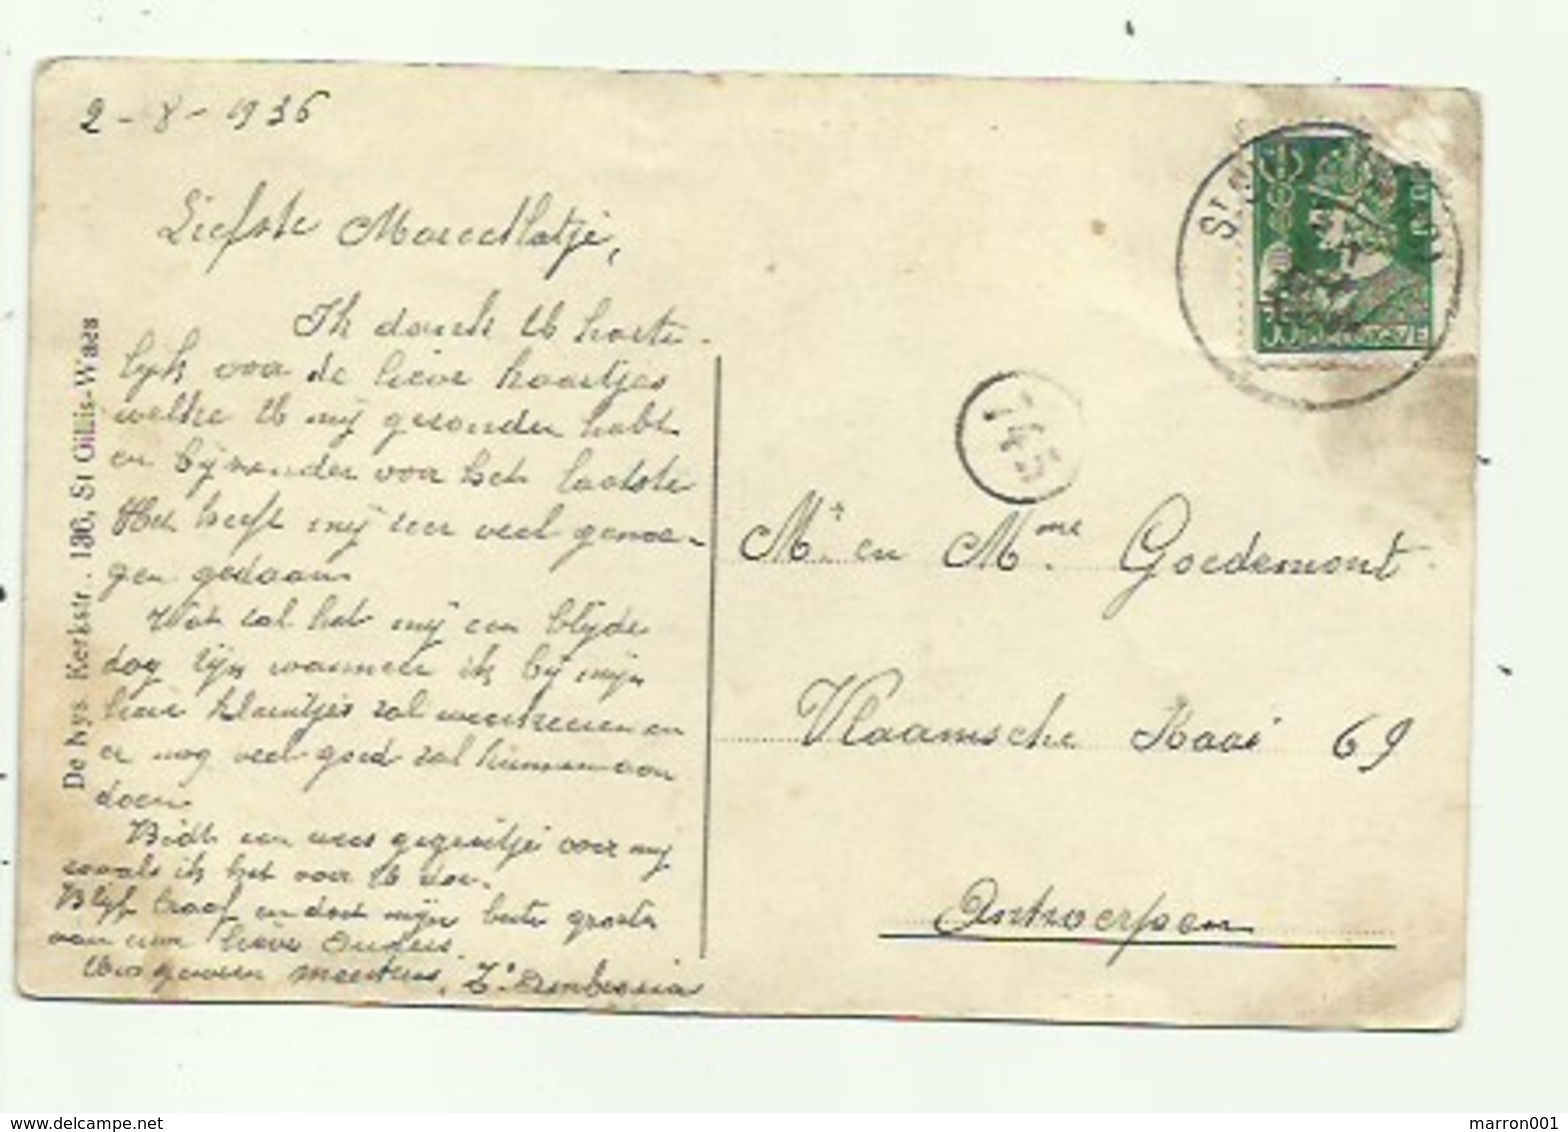 2 - 8 - 1936
Liefste Marcellatje,
Ik dank U harte-
lijk voor de lieve kaartjes
welke U mij gezonden hebt
en bijzonder voor het laatste
Het heeft mij zeer veel genoe-
gen gedaan.
Wat zal het mij een blijde
dag zijn wanneer ik bij mijn
lieve kleintjes zal weerkeeren en
er nog veel goed zal kunnen aan
doen.
Bidt een wees gegroetje voor mij
zooals ik het voor U doe.
Blijf braaf en doet mijn beste groeten
aan uwe lieve Ouders.
Uw genegen meesteres, Zr Ambrosia
De Nys. Kerkstr. 136, St Gillis-Waes
St
745
Mr. en Mme. Goedemont
Vlaamsche Kaai 69
Antwerpen
marron001